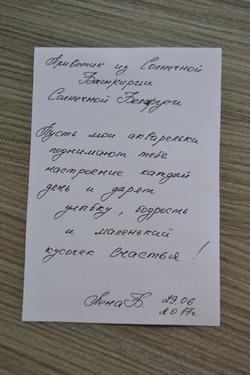 Приветик из Солнечной
Башкирии
Солнечной Беларуси.
Пусть мои акварельки
поднимают тебе
настроение каждый
день и дарят
улыбку, бодрость
и маленький
кусочек счастья!
Лена Б. 29.06
2017г.